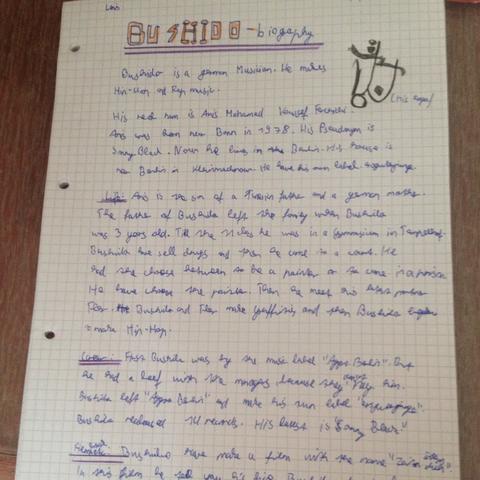 BUSHIDO - biography
Bushido is a german Musician. He makes
Hip-Hop and Rap music.
His real nam is Anis Mohamed Youssef Ferchichi.
Anis was born near Bonn in 1978. His Pseudonym is
Sonny Black. Now he lives in the Berlin. His house is
near Berlin in Kleinmachnow. He have his own label
Life: Anis is the son of a Tunesian father and a german mother.
The father of Bushido left the family when Bushido
was 3 years old. Till the 11 class he was in a Gymnasium in Tempelhof.
Bushido have sell drugs and then he come to a court. He
had the choose between to be a painter or to come in a prison.
He have choose the painter. Then he meet his
Fler. Bushido and Fler make graffitis and then Bushido
make Hip-Hop.
Career: First Bushido was by the music label "Aggro Berlin". But
he had a beef with the manager because they him.
Bushido left "Aggro Berlin" and make his own label "ersguterjunge".
Bushido released 14 records. His latest is "Sonny Black"
Bushido have make a film with the name "Zeiten
In this film he tell you his